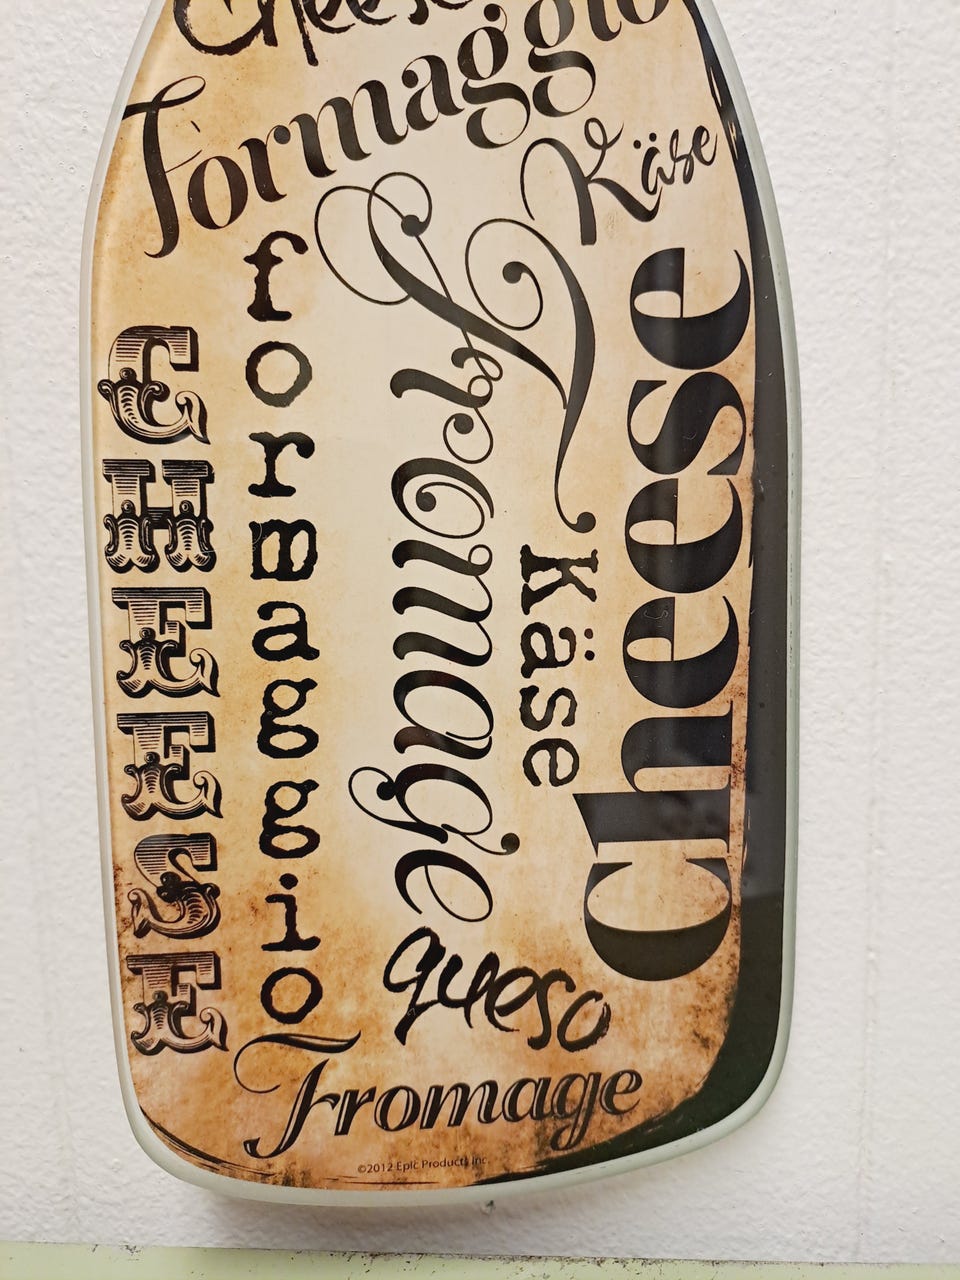 Cheese
Formaggio
Käse
CHEESE
formaggio
Fromage
Käse
Cheese
queso
Fromage
©2012 Epic Products Inc.